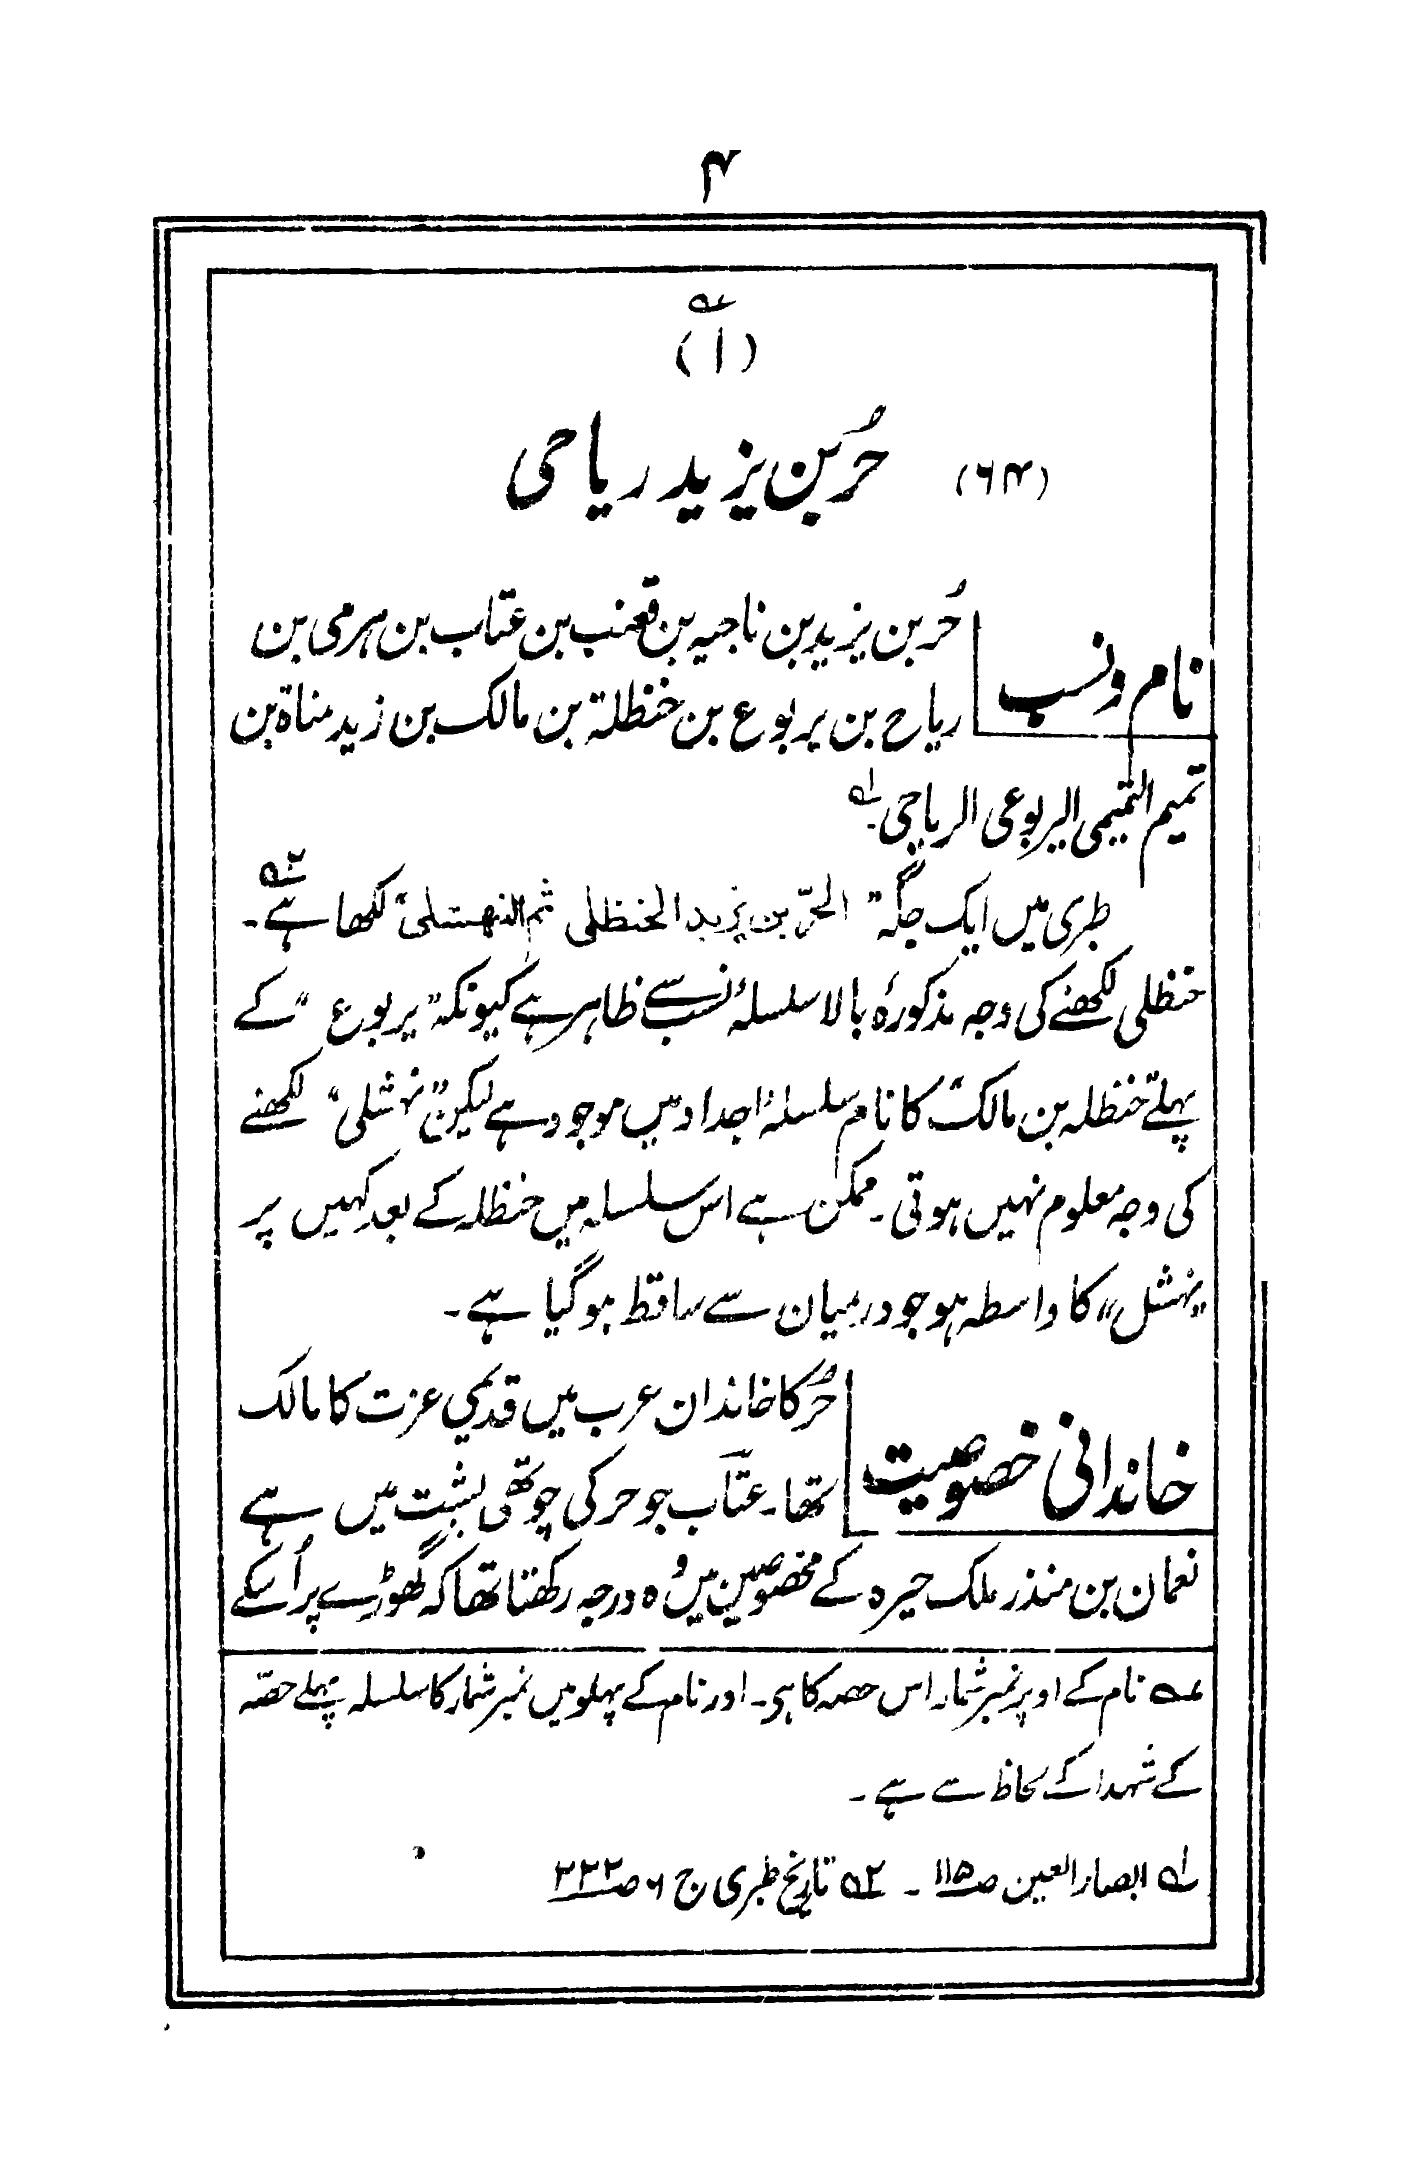 ۴
؎
(۱)
(۶۴) حُر بن یزید ریاحی
نام و نسب
حُر بن یزید بن ناجیہ بن قعنب بن عتاب بن ہرمی بن
ریاح بن یربوع بن حنظلۃ بن مالک بن زید مناۃ بن
تمیم التمیمی الیربوعی الریاحی۔ ؎۱
طبری میں ایک جگہ "الحرّ بن یزید الحنظلی ثم النھشلی" لکھا ہے۔ ؎۲
حنظلی لکھنے کی وجہ مذکورہ بالا سلسلۂ نسب سے ظاہر ہے کیونکہ "یربوع" کے
پہلے حنظلہ بن مالک" کا نام سلسلۂ اجداد میں موجود ہے لیکن "نہشلی" لکھنے
کی وجہ معلوم نہیں ہوتی۔ ممکن ہے اس سلسلہ میں حنظلہ کے بعد کہیں پر
"نہشل" کا واسطہ ہو جو درمیان سے ساقط ہو گیا ہے۔
خاندانی خصوصیت
حُر کا خاندان عرب میں قدیمی عزت کا مالک
تھا۔ عتّاب جو حر کی چوتھی پشت میں ہے
نعمان بن منذر ملک حیرہ کے مخصوصین میں وُہ درجہ رکھتا تھا کہ گھوڑے پر اُسکے
؎ نام کے اوپر نمبر شمار اس حصہ کا ہی۔ اور نام کے پہلو میں نمبر شمار کا سلسلہ پہلے حصّہ
کے شہدا کے لحاظ سے ہے۔
؎۱ ابصار العین ص۱۱۵ ۔ ؎۲ تاریخ طبری ج ۶ ص۲۳۲